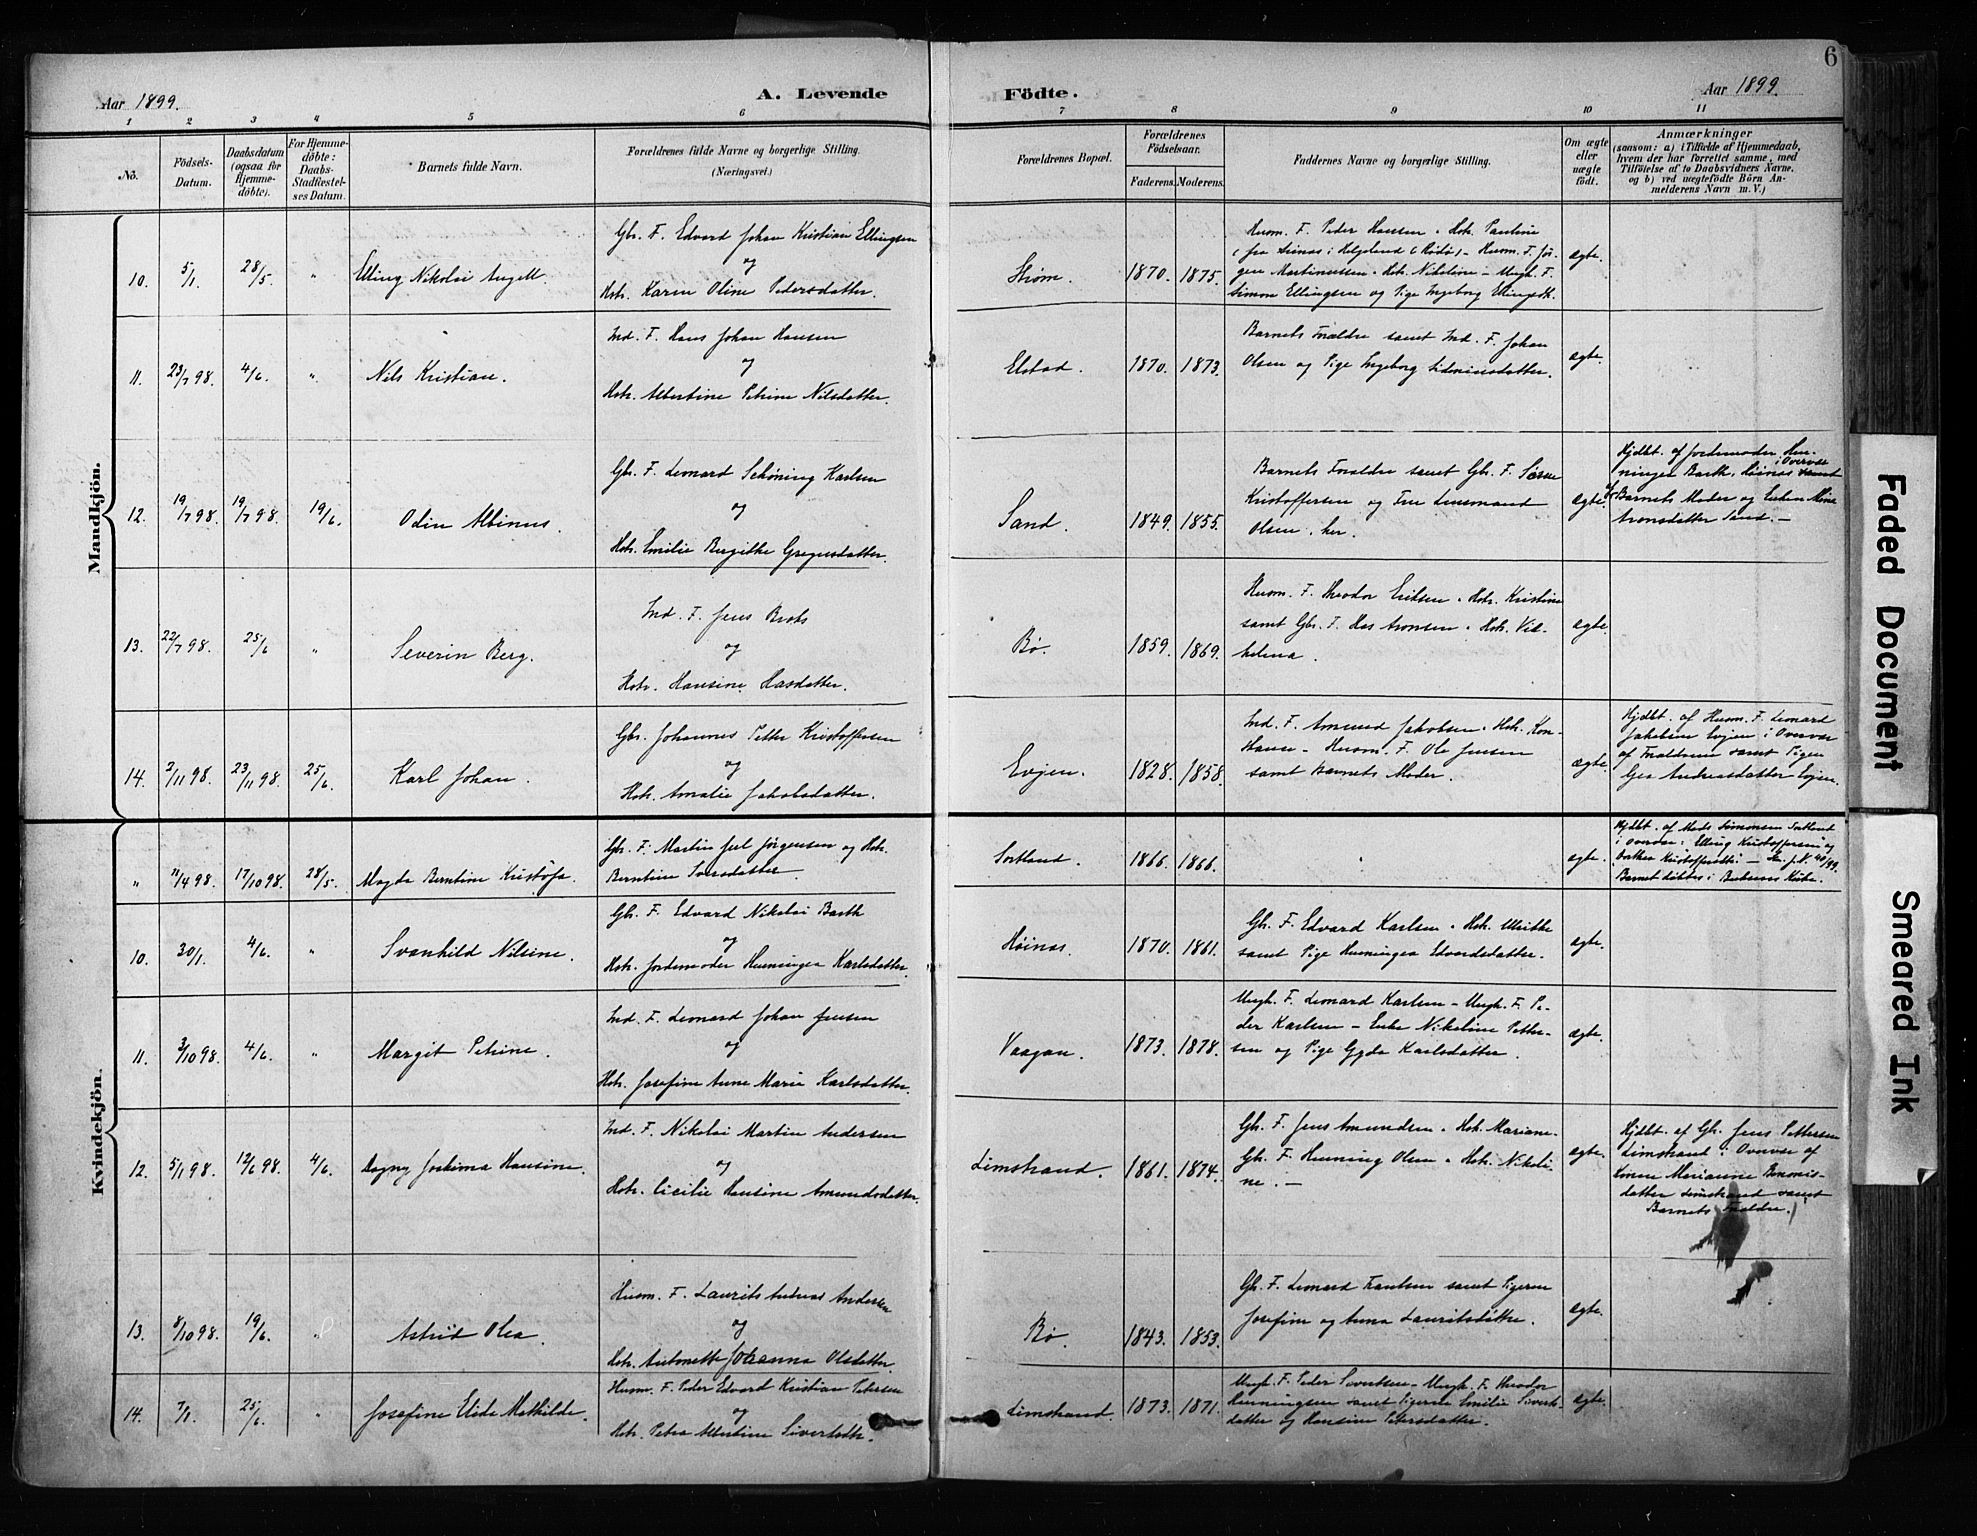 6
Aar 1899.
A. Levende
Födte.
Aar 1899.
1 2 3 4 5 6 7 8 9 10 11
No.
Födsels-
Datum.
Daabsdatum
(ogsaa for
Hjemme-
döbte).
For Hjemme-
döbte:
Daabs-
Stadfestel-
ses Datum.
Barnets fulde Navn.
Forældrenes fulde Navne og borgerlige Stilling.
(Næringsvei.)
Forældrenes Bopæl.
Forældrenes
Födselsaar.
Faderens. Moderens.
Faddernes Navne og borgerlige Stilling.
Om ægte
eller
uægte
født.
Anmærkninger
(saasom: a) i Tilfælde af Hjemmedaab,
hvem der har forrettet samme, med
Tilföielse af to Daabsvidners Navne,
og b) ved uægtefödte Börn An-
melderens Navn m. V.)
Mandkjön.
10. 5/1. 28/5. " Elling Nikolai Angell.
Gbr. F. Edvard Johan Kristian Ellingsen
og
Hstr. Karen Oline Pedersdatter.
Strøm. 1870. 1875.
Husm. F. Peder Hansen . Hstr. Pauline
Husm. F. Jör-
gen Martinussen . Hstr. Nikoline - Ungk. F.
Simon Ellingsen og Pige Ingeborg
ægte.
11. 23/7 98. 4/6. " Nils Kristian.
Ind. F. Hans Johan Hansen
og
Hstr. Albertine Petrine Nilsdatter.
Elstad. 1870. 1873.
Barnets Forældre samt Ind. F. Johan
Olsen og Pige Ingeborg
ægte.
12. 19/7 98. 19/7 98. 19/6. Odin Albinus.
Gbr. F. Leonard Schøning Karlsen
og
Hstr. Emilie Bergithe Gregusdatter.
Sand. 1849. 1855.
Barnets Forældre samt Gbr. F.
Kristoffersen og Fru Lensmand
Olsen, her.
ægte.
Hjdbt. af Jordemoder Hen-
ninger Barth, Høinas i Overvær
af Barnets Moder og Enken
Aronsdatter Sand. -
13. 22/7 98. 25/6 " Severin Berg.
Ind. F. Jens
og
Hstr. Hansine Hasdatter.
Bø. 1859. 1869.
Husm. F. Theodor Eriksen . Hstr. Kristine
samt Gbr. F. Has Aronsen . Hstr. Vil-
helmina.
ægte.
14. 2/11 98. 23/11 98. 25/6. Karl Johan.
Gbr. Johannes Petter Kristoffersen
og
Hstr. Amalie Jakobsdatter.
Evjen. 1828. 1858.
Ind. F. Amund Jakobsen . Hstr. Kon-
stanse - Husm. F. Ole Jensen
samt Barnets Moder.
ægte.
Hjdbt. af Husm. F. Leonard
Jakobsen Evjen i Overvær
af Forældrene samt Pigen
Andreasdatter Evjen.
Kvindekjön.
" 11/4 98. 17/10 98. 28/5. Magda Berntine Kristofa.
Gbr. F. Martin Juel Jørgensen og Hstr.
Berntine
Sortland. 1866. 1866.
ægte.
Hjdbt. af Mads Simonsen Sortland
i Overvær: Elling Kristoffersen og
10. 30/1. 4/6. " Svanhild Nilsine.
Gbr. F. Edvard Nikolai Barth
og
Hstr. Jordemoder Henningea Karlsdatter.
Høinas. 1870. 1861.
Gbr. F. Edvard Karlsen . Hstr. Ulrikke
samt Pige Henningea Edvardsdatter.
ægte.
11. 3/10 98. 4/6. " Margit Petrine.
Ind. F. Leonard Johan Jensen
og
Hstr. Josefine Anne Marie Karlsdatter.
Vaagan. 1873. 1878.
Ungk. F. Leonard Karlsen - Ungk. F. Pe-
der Karlsen - Enke Nikoline Petter-
sen og Pige Gyda Karlsdatter.
ægte.
12. 5/1 98. 12/6 98. 4/6. Dagny Joakima Hansine.
Ind. F. Nikolai Martin Andersen
og
Hstr. Cicilie Hansine Amundsdatter.
Limstrand. 1861. 1874.
Gbr. F. Jens Amundsen . Hstr. Mariane.
Gbr. F. Henning Olsen . Hstr. Nikoli-
ne. -
ægte.
Hjdbt. af Gbr. Jens Pettersen
Limstrand i Overvær af
Konen Marianne
datter Limstrand samt
Barnets Forældre.
13. 8/10 98. 19/6. " Astrid Olea.
Husm. F. Laurits Andreas Andersen
og
Hstr. Antonette Johanna Olsdatter.
Bø. 1843. 1853.
Gbr. F. Leonard samt Pigerne
Josefine og Anna Lauritsdøttre.
ægte.
14. 7/1. 25/6. " Josefine Elide Mathilde.
Husm. F. Peder Edvard Kristian Petersen
og
Hstr. Petra Albertine Sivertsdtr.
Limstrand. 1873. 1871.
Ungk. F. Peder Sivertsen - Ungk. F. Theodor
Henningsen samt Pigerne Emilie Siverts-
datter og Hansine Petersdatter.
ægte.
Faded Document
Smeared Ink